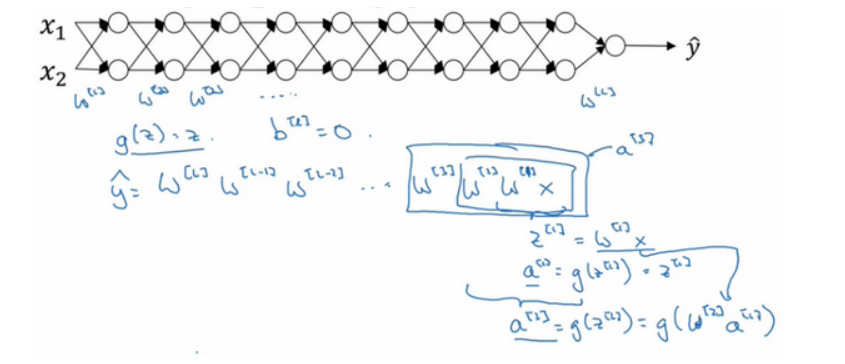 x₁
ŷ
x₂
w^[1] w^[2] w^[3] ..... w^[L]
g(z) = z. b^[l] = 0.
ŷ = w^[L] w^[L-1] w^[L-2] ... w^[3] w^[2] w^[1] x a^[3]
z^[1] = w^[1] x
a^[1] = g(z^[1]) = z^[1]
a^[2] = g(z^[2]) = g(w^[2] a^[1])